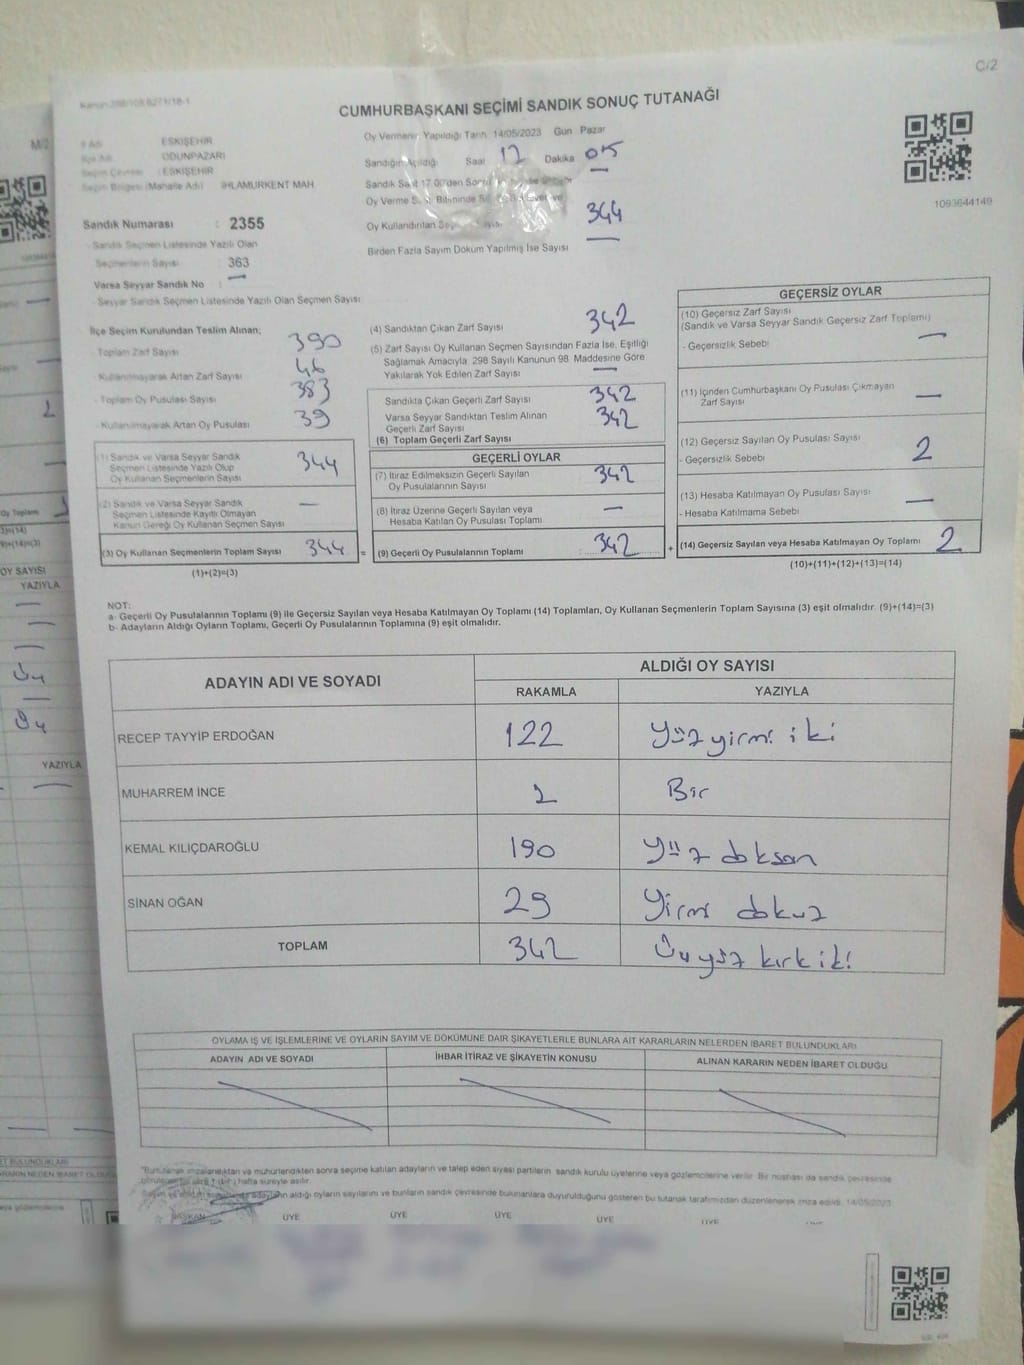 C/2
CUMHURBAŞKANI SEÇİMİ SANDIK SONUÇ TUTANAĞI
1093644149
ESKİŞEHİR
ODUNPAZARI
ESKİŞEHİR
Seçim Bölgesi (Mahalle Adı) IHLAMURKENT MAH
Sandık Numarası : 2355
Sandık Seçmen Listesinde Yazılı Olan
Seçmenlerin Sayısı : 363
Varsa Seyyar Sandık No : —
- Seyyar Sandık Seçmen Listesinde Yazılı Olan Seçmen Sayısı
Oy Vermenin Yapıldığı Tarih 14/05/2023 Gün Pazar
Sandığın Açıldığı Saat 17 Dakika 05
Sandık Saat 17.00'den Sonra
Oy Verme Bitiminde
Oy Kullandırılan 344
Birden Fazla Sayım Döküm Yapılmış İse Sayısı —
İlçe Seçim Kurulundan Teslim Alınan;
- Toplam Zarf Sayısı 390
Kullanılmayarak Artan Zarf Sayısı 46
- Toplam Oy Pusulası Sayısı 383
- Kullanılmayarak Artan Oy Pusulası 39
(1) Sandık ve Varsa Seyyar Sandık
Seçmen Listesinde Yazılı Olup
Oy Kullanan Seçmenlerin Sayısı 344
(2) Sandık ve Varsa Seyyar Sandık
Seçmen Listesinde Kayıtlı Olmayan
Kanun Gereği Oy Kullanan Seçmen Sayısı —
(3) Oy Kullanan Seçmenlerin Toplam Sayısı 344 =
(1)+(2)=(3)
(4) Sandıktan Çıkan Zarf Sayısı 342
(5) Zarf Sayısı Oy Kullanan Seçmen Sayısından Fazla İse, Eşitliği
Sağlamak Amacıyla, 298 Sayılı Kanunun 98. Maddesine Göre
Yakılarak Yok Edilen Zarf Sayısı —
Sandıkta Çıkan Geçerli Zarf Sayısı 342
Varsa Seyyar Sandıktan Teslim Alınan
Geçerli Zarf Sayısı 342
(6) Toplam Geçerli Zarf Sayısı
GEÇERLİ OYLAR
(7) İtiraz Edilmeksizin Geçerli Sayılan
Oy Pusulalarının Sayısı 342
(8) İtiraz Üzerine Geçerli Sayılan veya
Hesaba Katılan Oy Pusulası Toplamı —
(9) Geçerli Oy Pusulalarının Toplamı : 342 +
GEÇERSİZ OYLAR
(10) Geçersiz Zarf Sayısı
(Sandık ve Varsa Seyyar Sandık Geçersiz Zarf Toplamı)
- Geçersizlik Sebebi —
(11) İçinden Cumhurbaşkanı Oy Pusulası Çıkmayan
Zarf Sayısı —
(12) Geçersiz Sayılan Oy Pusulası Sayısı 2
- Geçersizlik Sebebi
(13) Hesaba Katılmayan Oy Pusulası Sayısı —
- Hesaba Katılmama Sebebi
(14) Geçersiz Sayılan veya Hesaba Katılmayan Oy Toplamı 2
(10)+(11)+(12)+(13)=(14)
NOT:
a- Geçerli Oy Pusulalarının Toplamı (9) ile Geçersiz Sayılan veya Hesaba Katılmayan Oy Toplamı (14) Toplamları, Oy Kullanan Seçmenlerin Toplam Sayısına (3) eşit olmalıdır. (9)+(14)=(3)
b- Adayların Aldığı Oyların Toplamı, Geçerli Oy Pusulalarının Toplamına (9) eşit olmalıdır.
ADAYIN ADI VE SOYADI ALDIĞI OY SAYISI
RAKAMLA YAZIYLA
RECEP TAYYİP ERDOĞAN 122 Yüz yirmi iki
MUHARREM İNCE 1 Bir
KEMAL KILIÇDAROĞLU 190 Yüz doksan
SİNAN OĞAN 29 Yirmi dokuz
TOPLAM 342 Üçyüz kırk iki
OYLAMA İŞ VE İŞLEMLERİNE VE OYLARIN SAYIM VE DÖKÜMÜNE DAİR ŞİKAYETLERLE BUNLARA AİT KARARLARIN NELERDEN İBARET BULUNDUKLARI
ADAYIN ADI VE SOYADI İHBAR İTİRAZ VE ŞİKAYETİN KONUSU ALINAN KARARIN NEDEN İBARET OLDUĞU
*Bu tutanak imzalandıktan ve mühürlendikten sonra seçime katılan adayların ve talep eden siyasi partilerin sandık kurulu üyelerine veya gözlemcilerine verilir. Bir nüshası da sandık çevresinde
hafta süreyle asılır.
adayların aldığı oyların sayılarını ve bunların sandık çevresinde bulunanlara duyurulduğunu gösteren bu tutanak tarafımızdan düzenlenerek imza edildi. 14/05/2023
BAŞKAN ÜYE ÜYE ÜYE ÜYE ÜYE
M/2
Oy Toplamı
OY SAYISI
YAZIYLA
YAZIYLA